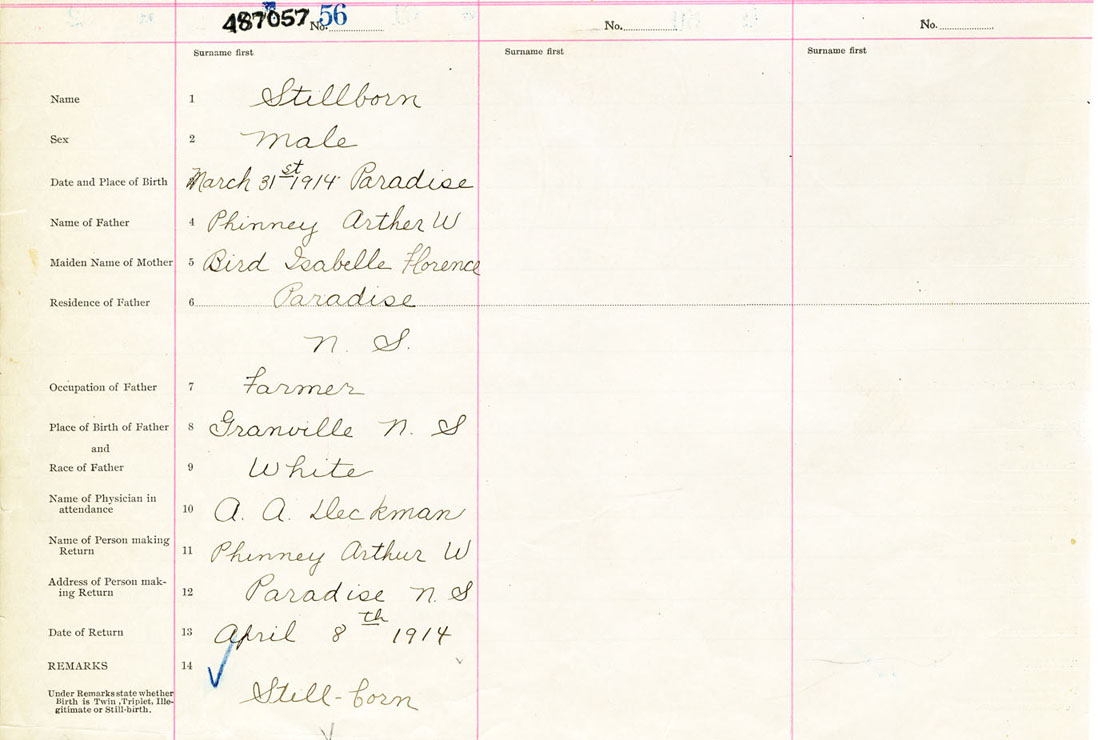 487057 No. 56 No. No.
Surname first Surname first Surname first
Name 1 Stillborn
Sex 2 Male
Date and Place of Birth March 31st 1914 Paradise
Name of Father 4 Phinney Arther W
Maiden Name of Mother 5 Bird Isabelle Florence
Residence of Father 6 Paradise
N. S.
Occupation of Father 7 Farmer
Place of Birth of Father 8 Granville N. S
and
Race of Father 9 White
Name of Physician in
attendance 10 A. A. Deckman
Name of Person making
Return 11 Phinney Arthur W
Address of Person mak-
ing Return 12 Paradise N. S
Date of Return 13 April 8th 1914
REMARKS 14
Under Remarks state whether
Birth is Twin, Triplet, Ille-
gitimate or Still-birth.
Still-born